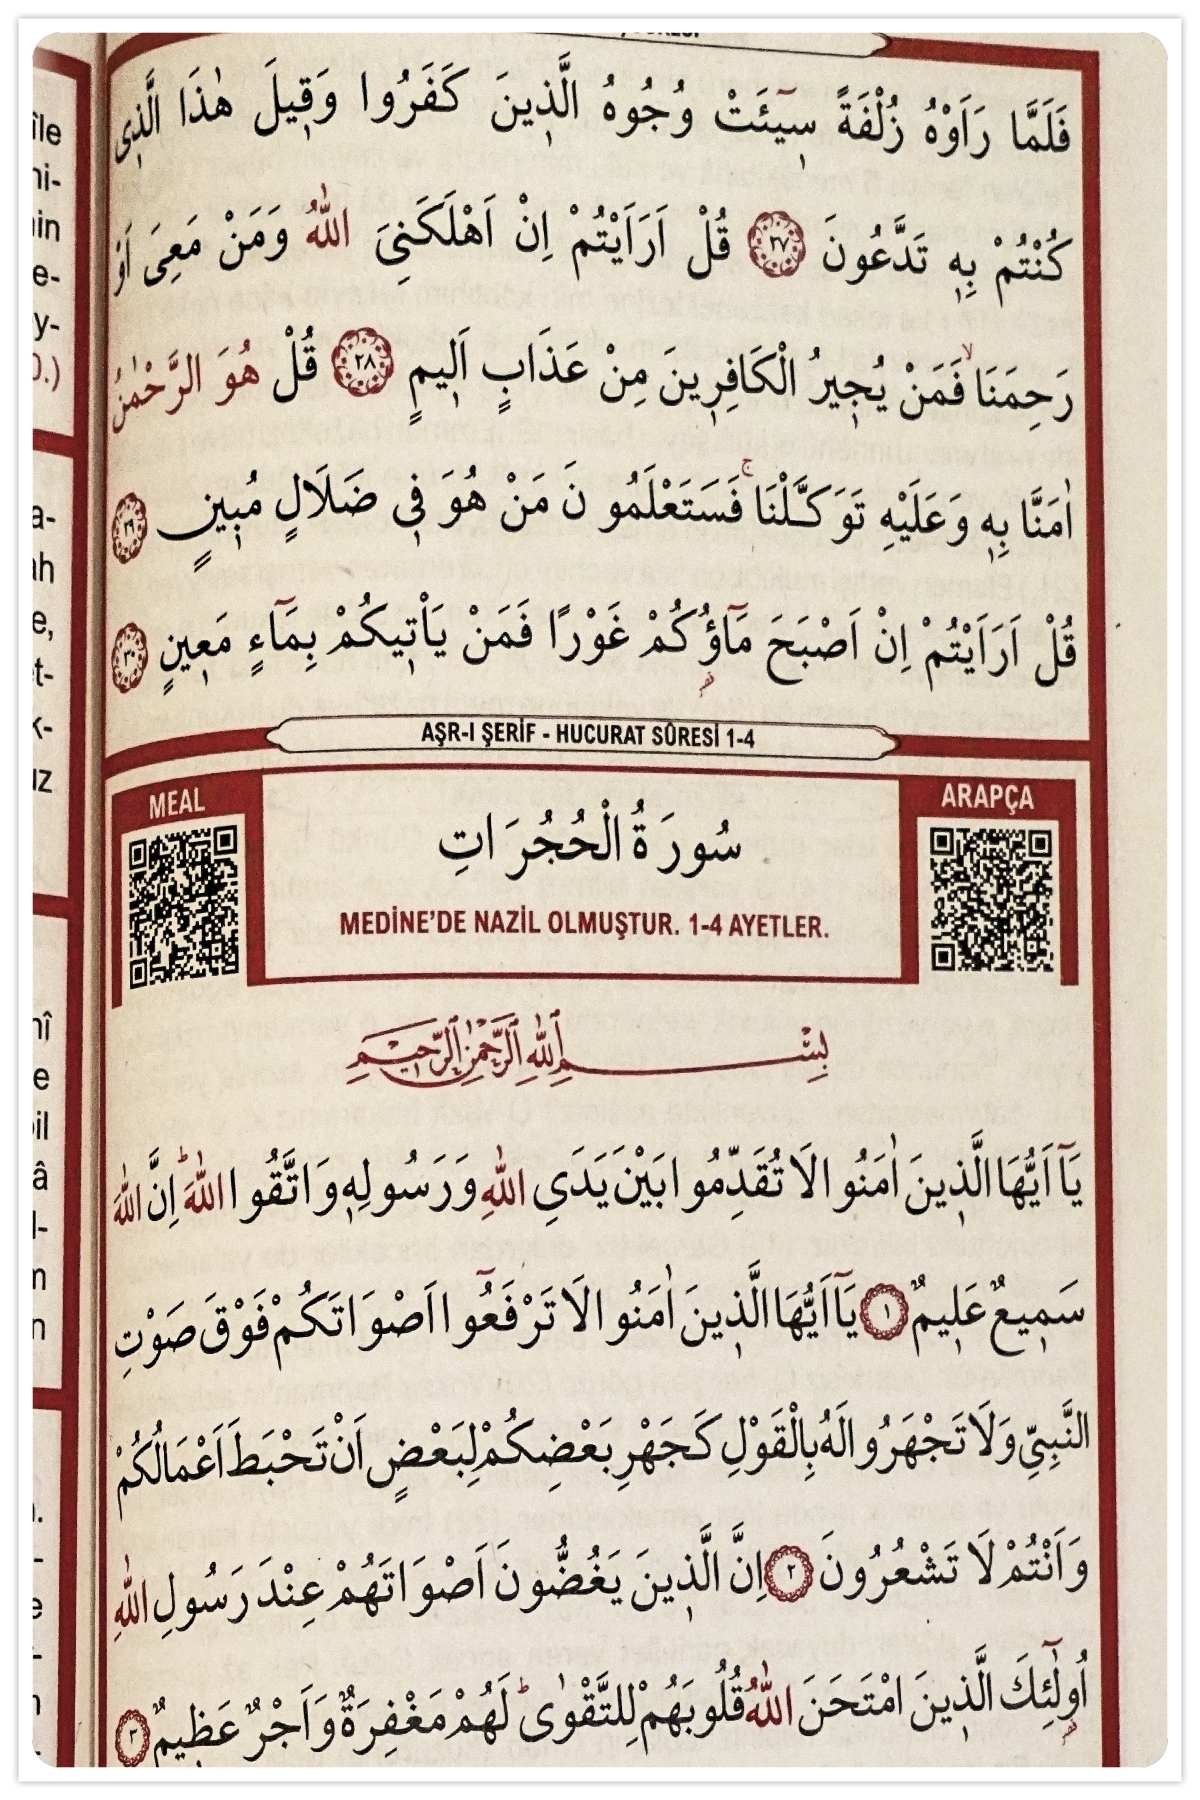 فَلَمَّا رَاَوْهُ زُلْفَةً سٖٓيـَٔتْ وُجُوهُ الَّذٖينَ كَفَرُوا وَقٖيلَ هٰذَا الَّذٖى
كُنْتُمْ بِهٖ تَدَّعُونَ ﴿٢٧﴾ قُلْ اَرَاَيْتُمْ اِنْ اَهْلَكَنِىَ اللّٰهُ وَمَنْ مَعِىَ اَوْ
رَحِمَنَاۙ فَمَنْ يُجٖيرُ الْكَافِرٖينَ مِنْ عَذَابٍ اَلٖيمٍ ﴿٢٨﴾ قُلْ هُوَ الرَّحْمٰنُ
اٰمَنَّا بِهٖ وَعَلَيْهِ تَوَكَّلْنَاۚ فَسَتَعْلَمُونَ مَنْ هُوَ فٖى ضَلَالٍ مُبٖينٍ ﴿٢٩﴾
قُلْ اَرَاَيْتُمْ اِنْ اَصْبَحَ مَٓاؤُ۬كُمْ غَوْرًا فَمَنْ يَاْتٖيكُمْ بِمَٓاءٍ مَعٖينٍ ﴿٣٠﴾
AŞR-I ŞERİF - HUCURAT SÛRESİ 1-4
MEAL
ARAPÇA
سُورَةُ الْحُجُرَاتِ
MEDİNE'DE NAZİL OLMUŞTUR. 1-4 AYETLER.
بِسْمِ اللّٰهِ الرَّحْمٰنِ الرَّحٖيمِ
يَٓا اَيُّهَا الَّذٖينَ اٰمَنُوا لَا تُقَدِّمُوا بَيْنَ يَدَىِ اللّٰهِ وَرَسُولِهٖ وَاتَّقُوا اللّٰهَؕ اِنَّ اللّٰهَ
سَمٖيعٌ عَلٖيمٌ ﴿١﴾ يَٓا اَيُّهَا الَّذٖينَ اٰمَنُوا لَا تَرْفَعُٓوا اَصْوَاتَكُمْ فَوْقَ صَوْتِ
النَّبِىِّ وَلَا تَجْهَرُوا لَهُ بِالْقَوْلِ كَجَهْرِ بَعْضِكُمْ لِبَعْضٍ اَنْ تَحْبَطَ اَعْمَالُكُمْ
وَاَنْتُمْ لَا تَشْعُرُونَ ﴿٢﴾ اِنَّ الَّذٖينَ يَغُضُّونَ اَصْوَاتَهُمْ عِنْدَ رَسُولِ اللّٰهِ
اُو۬لٰٓئِكَ الَّذٖينَ امْتَحَنَ اللّٰهُ قُلُوبَهُمْ لِلتَّقْوٰىؕ لَهُمْ مَغْفِرَةٌ وَاَجْرٌ عَظٖيمٌ ﴿٣﴾